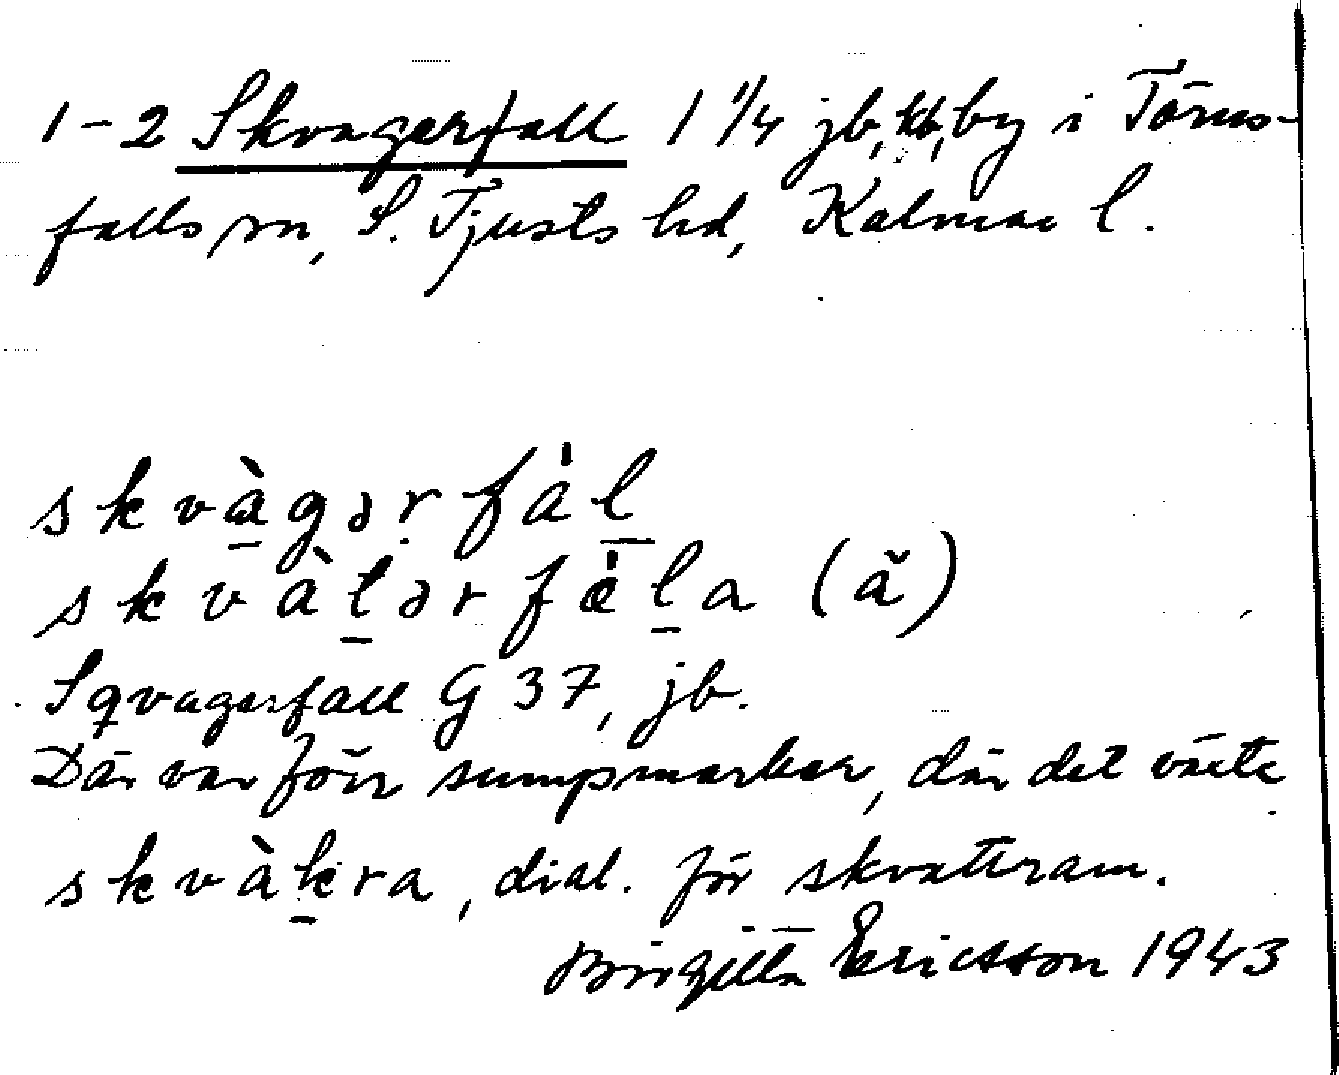 1-2 Skvagerfall 1 1/4 jb, kb, by i Törns-
falls sn, S. Tjusts hd, Kalmar l.
skvàgərfál
skvàlərfála (ă)
Sqvagerfall G 37, jb.
Där var förr sumpmarker, där det växte
skvàkra, dial. för skvattram.
Birgitta Ericsson 1943